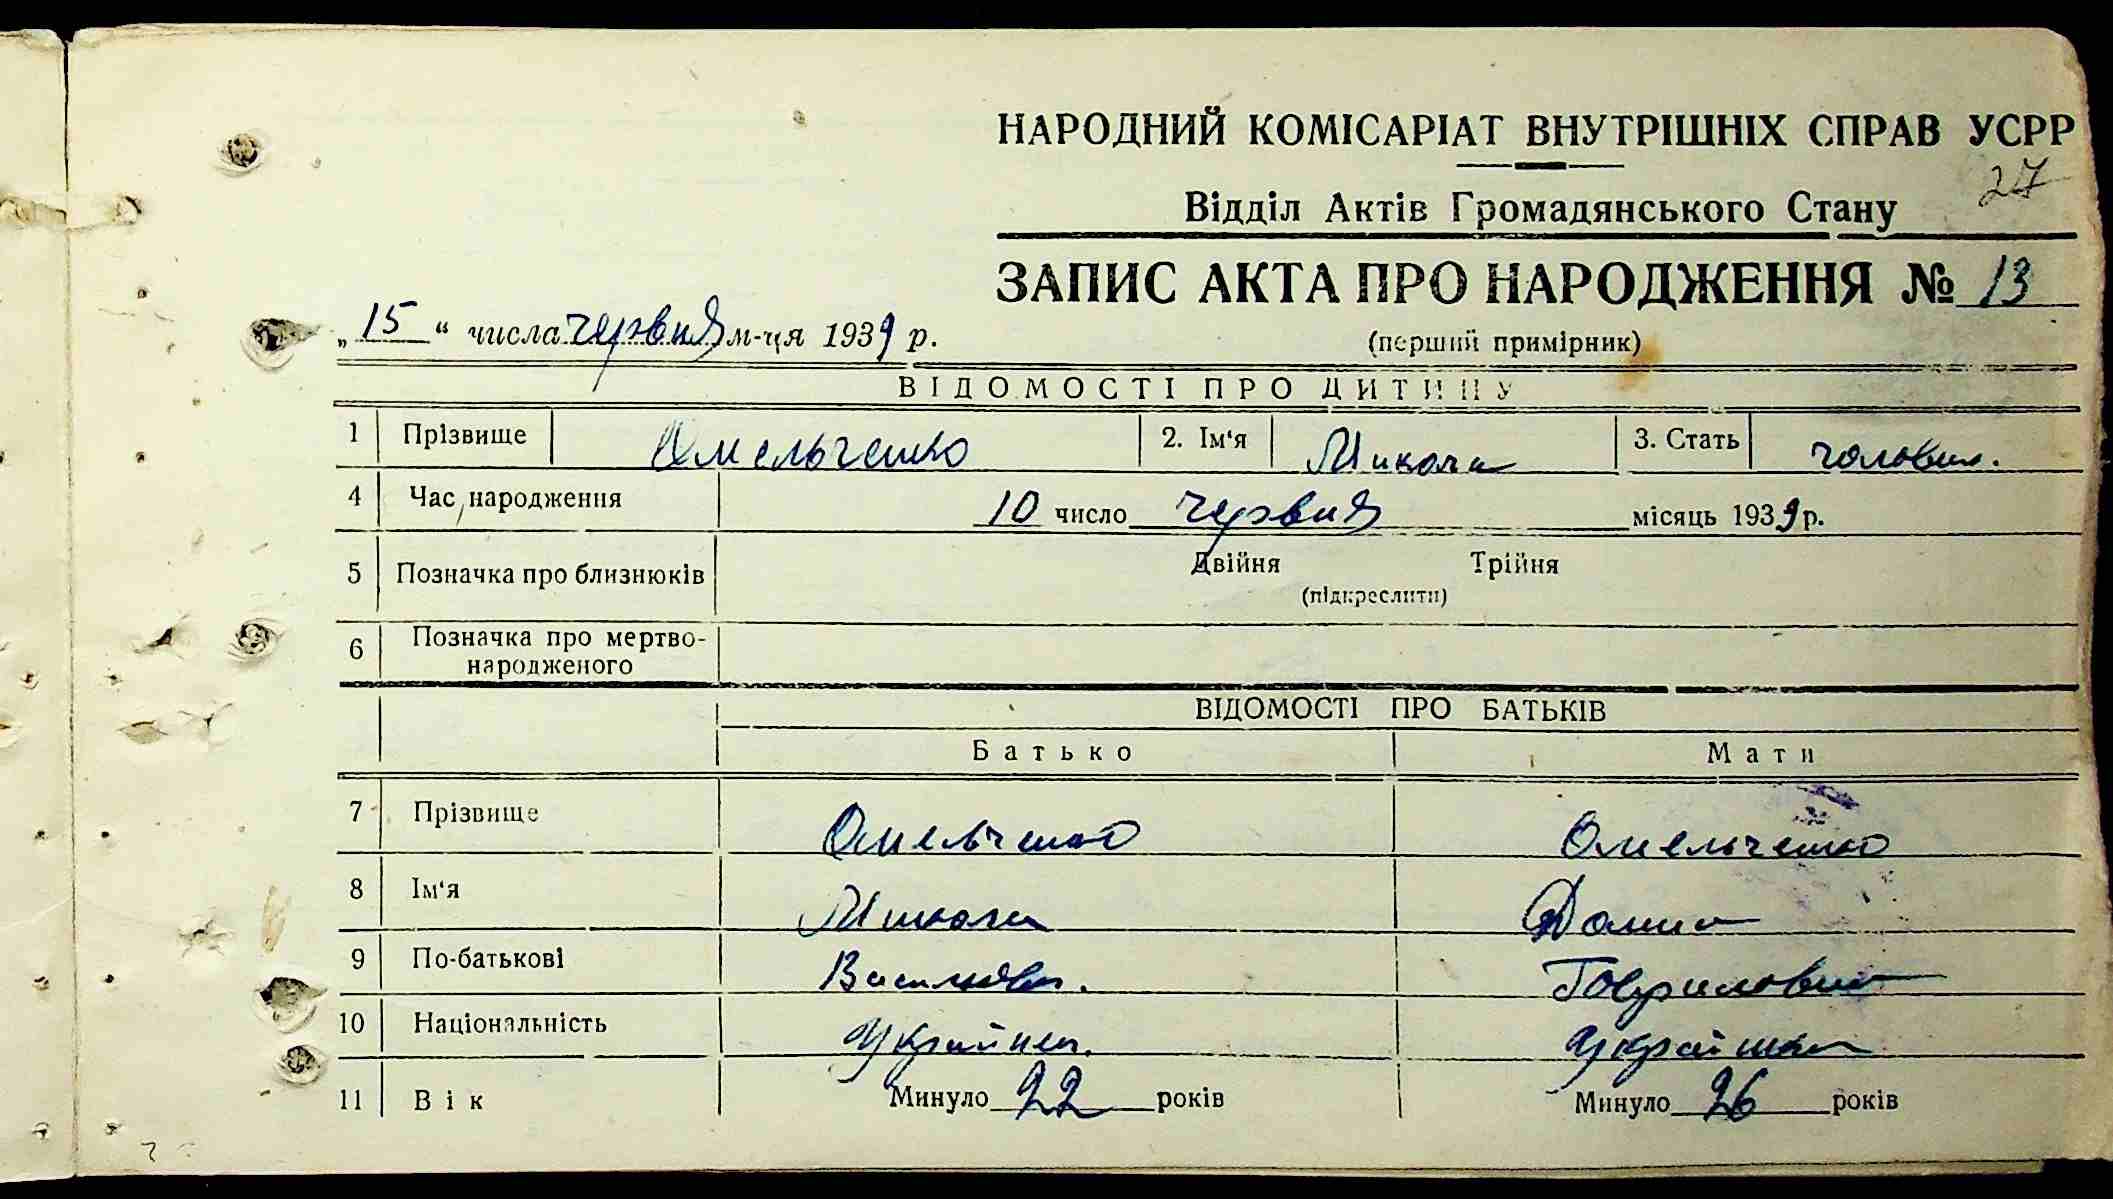 НАРОДНИЙ КОМІСАРІАТ ВНУТРІШНІХ СПРАВ УСРР
27
Відділ Актів Громадянського Стану
ЗАПИС АКТА ПРО НАРОДЖЕННЯ № 13
„15“ числа червня м-ця 1939 р.
(перший примірник)
ВІДОМОСТІ ПРО ДИТИНУ
1 Прізвище Омельченко 2. Ім'я Микола 3. Стать чоловіч.
4 Час народження 10 число червня місяць 1939 р.
5 Позначка про близнюків Двійня Трійня
(підкреслити)
6 Позначка про мертво-
народженого
ВІДОМОСТІ ПРО БАТЬКІВ
Батько Мати
7 Прізвище Омельченко Омельченко
8 Ім'я Микола
9 По-батькові Гавриловна
10 Національність Українец. Українка
11 Вік Минуло 22 років Минуло 26 років